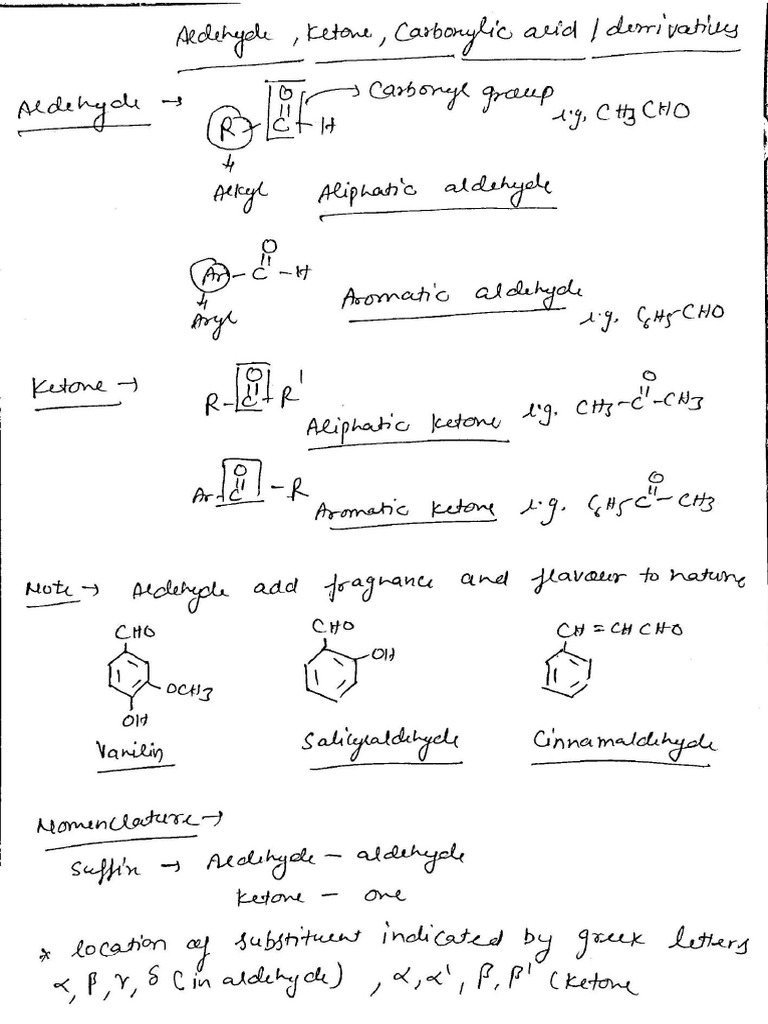 Aldehyde, Ketone, Carboxylic acid / derrivatives
Aldehyde → R-C-H → Carbonyl group e.g, CH3CHO
O
Alkyl Aliphatic aldehyde
O
Ar-C-H
Aryl Aromatic aldehyde e.g, C6H5CHO
O
Ketone → R-C-R'
Aliphatic Ketone e.g. CH3-C-CH3
O
O
Ar-C-R
Aromatic Ketone e.g. C6H5C-CH3
O
Note → Aldehyde add fragnance and flavour to nature
CHO CHO CH=CHCHO
OCH3 OH
OH
Vanilin Salicylaldehyde Cinnamaldehyde
Nomenclature →
Suffix → Aldehyde – aldehyde
Ketone – one
* location of substituent indicated by greek letters
α, β, γ, δ (in aldehyde), α, α', β, β' (Ketone